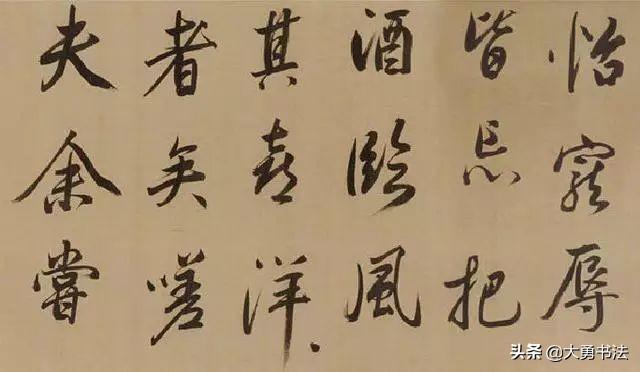 怡寵辱
皆忘把
酒臨風
其喜洋、
者矣嗟
夫余嘗
头条 @大勇书法